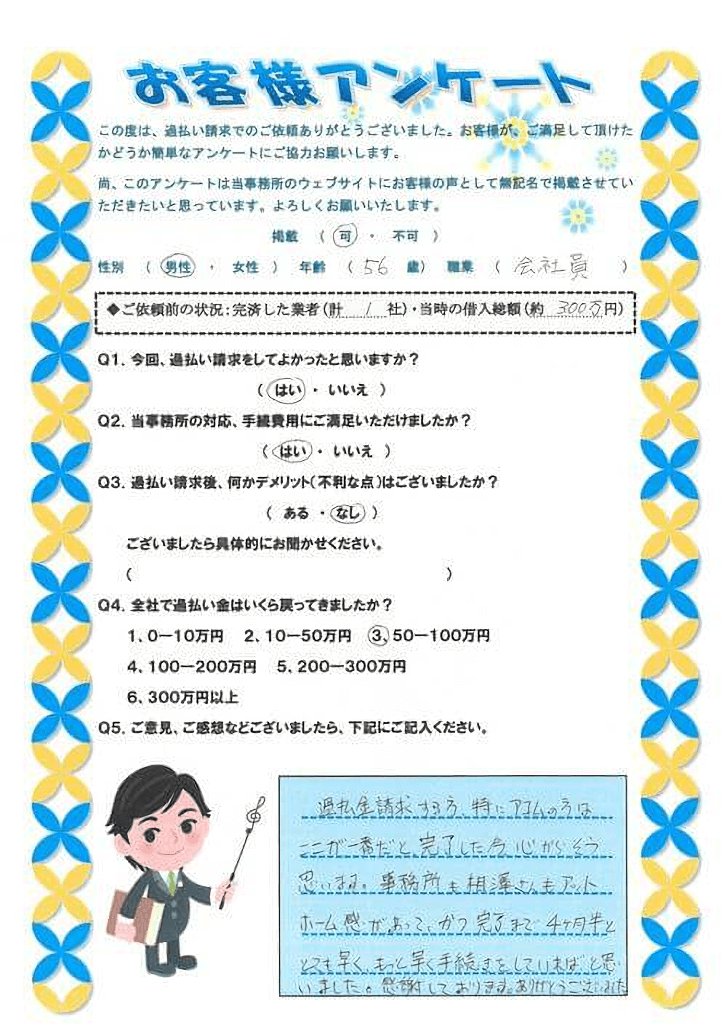 お客様アンケート
この度は、過払い請求でのご依頼ありがとうございました。お客様が、ご満足して頂けた
かどうか簡単なアンケートにご協力お願いします。
尚、このアンケートは当事務所のウェブサイトにお客様の声として無記名で掲載させてい
ただきたいと思っています。よろしくお願いいたします。
掲載 ( 可 ・ 不可 )
性別 ( 男性 ・ 女性 ) 年齢 ( 56 歳) 職業 ( 会社員 )
◆ご依頼前の状況:完済した業者(計 1 社)・当時の借入総額(約 300万円)
Q1. 今回、過払い請求をしてよかったと思いますか?
( はい ・ いいえ )
Q2. 当事務所の対応、手続費用にご満足いただけましたか?
( はい ・ いいえ )
Q3. 過払い請求後、何かデメリット(不利な点)はございましたか?
( ある ・ なし )
ございましたら具体的にお聞かせください。
( )
Q4. 全社で過払い金はいくら戻ってきましたか?
1、0ー10万円 2、10ー50万円 3、50ー100万円
4、100ー200万円 5、200ー300万円
6、300万円以上
Q5. ご意見、ご感想などございましたら、下記にご記入ください。
過払金請求する方、特にアコムの方は
ここが一番だと、完了した今心からそう
思います。事務所も相澤さんもアット
ホーム感があって、かつ完了まで4ヶ月半と
とても早く、もっと早く手続きをしていればと思
いました。感謝しております。ありがとうございました